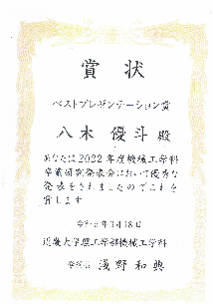 賞状
ベストプレゼンテーション賞
八木 優斗 殿
あなたは2022年度機械工学科
卒業研究発表会において優秀な
発表をされましたのでこれを
賞します
近畿大学理工学部機械工学科
浅野和典